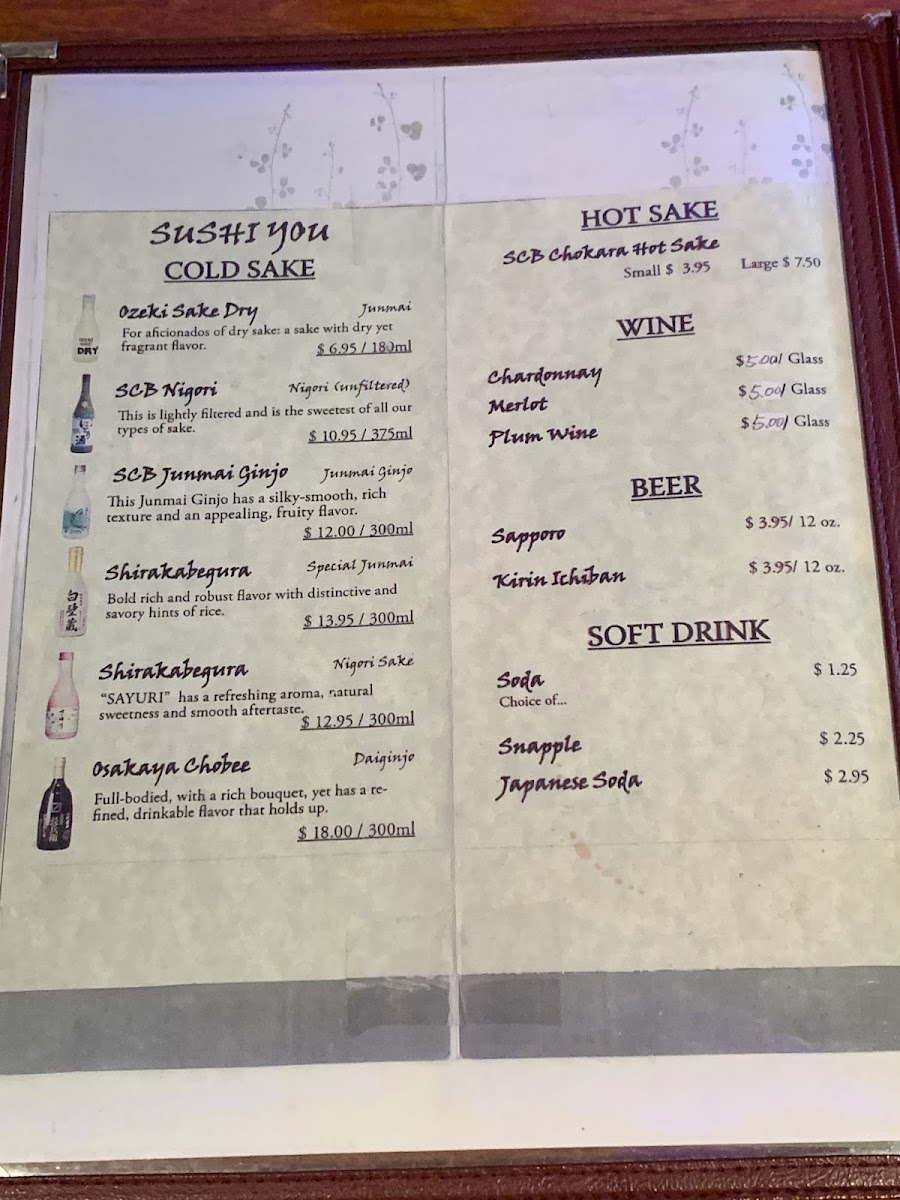 SUSHI YOU
COLD SAKE
Ozeki Sake Dry Junmai
For aficionados of dry sake: a sake with dry yet
fragrant flavor.
$ 6.95 / 180ml
DRY
SCB Nigori Nigori (unfiltered)
This is lightly filtered and is the sweetest of all our
types of sake.
$ 10.95 / 375ml
SCB Junmai Ginjo Junmai Ginjo
This Junmai Ginjo has a silky-smooth, rich
texture and an appealing, fruity flavor.
$ 12.00 / 300ml
Shirakabegura Special Junmai
Bold rich and robust flavor with distinctive and
savory hints of rice.
$ 13.95 / 300ml
白壁蔵
Shirakabegura Nigori Sake
“SAYURI” has a refreshing aroma, natural
sweetness and smooth aftertaste.
$ 12.95 / 300ml
Osakaya Chobee Daiginjo
Full-bodied, with a rich bouquet, yet has a re-
fined, drinkable flavor that holds up.
$ 18.00 / 300ml
HOT SAKE
SCB Chokara Hot Sake
Small $ 3.95 Large $ 7.50
WINE
Chardonnay $5.00/ Glass
Merlot $5.00/ Glass
Plum Wine $5.00/ Glass
BEER
Sapporo $ 3.95/ 12 oz.
Kirin Ichiban $ 3.95/ 12 oz.
SOFT DRINK
Soda $ 1.25
Choice of...
Snapple $ 2.25
Japanese Soda $ 2.95